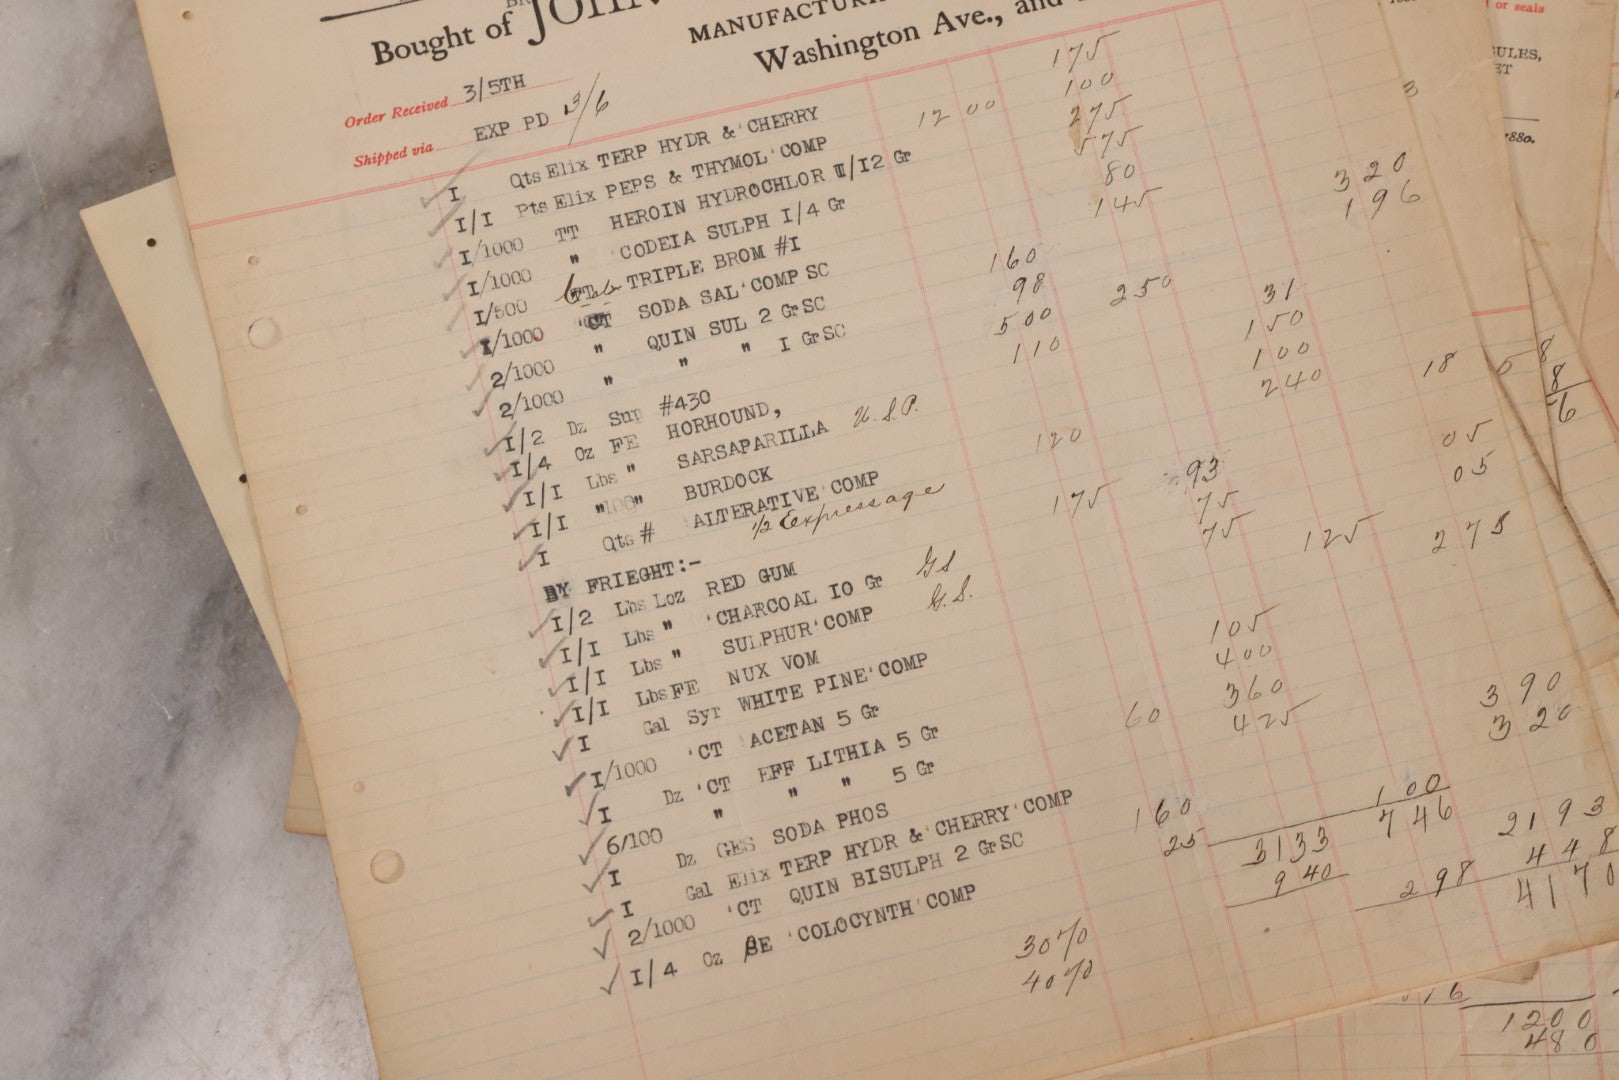 Bought of JOHN
MANUFACTURI
Washington Ave., and
Order Received 3/5TH
Shipped via EXP PD 3/6
I Qts Elix TERP HYDR & CHERRY 175
I/I Pts Elix PEPS & THYMOL COMP 12 00 100
I/1000 TT HEROIN HYDROCHLOR I/I2 Gr 275
I/1000 " CODEIA SULPH I/4 Gr 575
I/500 TRIPLE BROM #I 80
I/1000 CT SODA SAL COMP SC 145 320
2/1000 " QUIN SUL 2 Gr SC 160 196
2/1000 " " " I Gr SC 98
I/2 Dz Sup #430 500 250 31
I/4 Oz FE HORHOUND, 110 150
I/I Lbs " SARSAPARILLA U.S.P. 100
I/I " 100 " BURDOCK 240 18
I Qts # ALTERATIVE COMP 120
1/2 Eexpressage
BY FRIEGHT:-
I/2 Lbs Loz RED GUM 175 93 05
I/I Lbs " CHARCOAL IO Gr GS 75 05
I/I Lbs " SULPHUR COMP G.S. 75 125 275
I/I Lbs FE NUX VOM
I Gal Syr WHITE PINE COMP 105
I/1000 CT ACETAN 5 Gr 400
I Dz CT EFF LITHIA 5 Gr 360 390
6/100 " " " 5 Gr 60 425 320
I Dz GES SODA PHOS
I Gal Elix TERP HYDR & CHERRY COMP 160 100
2/1000 CT QUIN BISULPH 2 Gr SC 25 3133 746 2193
I/4 Oz BE COLOCYNTH COMP 940 298 448
4170
30%
40%
or seals
ULES,
ET
1880.
3
8
8
6
16
1200
480